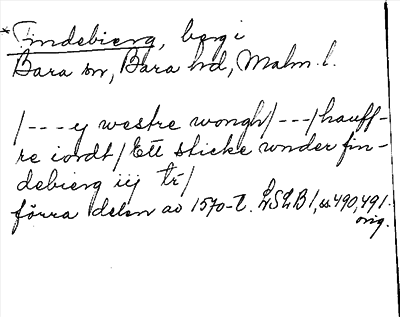 *Findebierg, berg i
Bara sn, Bara hd, Malm. l.
/---ij westre wongh/---/hauff-
re iordt/Ett sticke wnder fin-
debierg iij tr/
förra delen av 1570-t. LSLB 1, ss 490, 491.
orig.